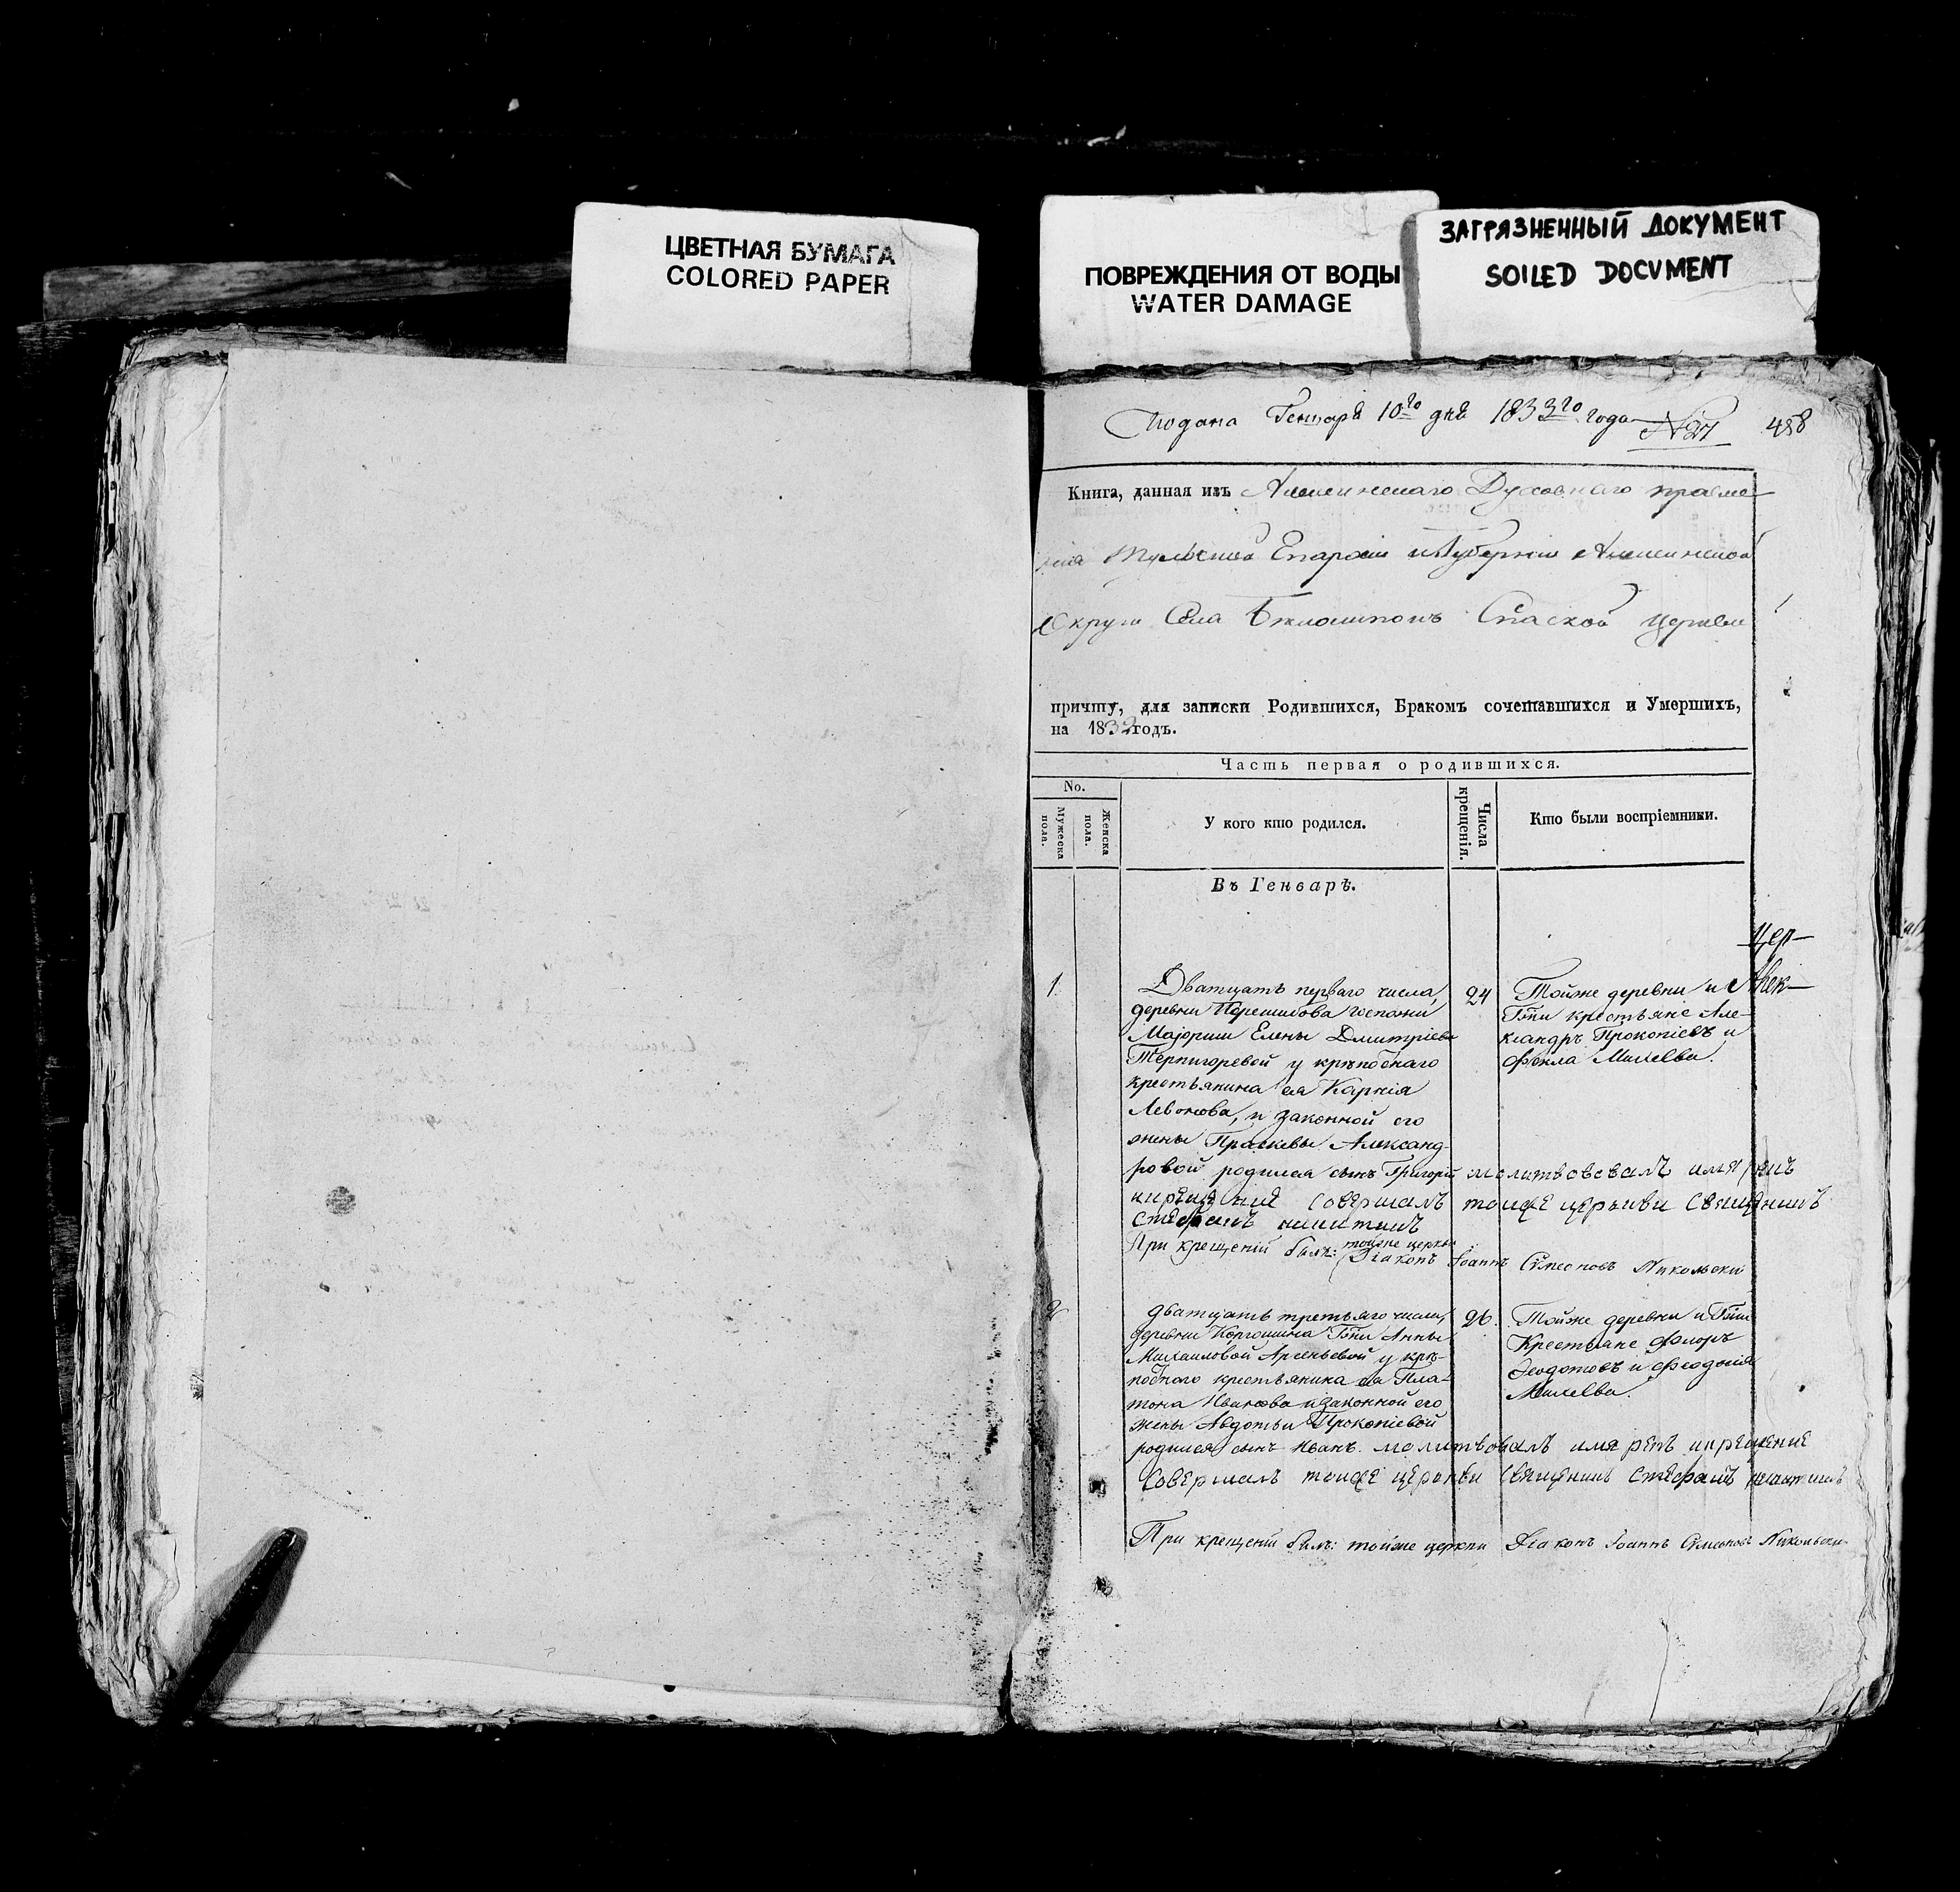 ЦВЕТНАЯ БУМАГА
COLORED PAPER
ПОВРЕЖДЕНИЯ ОТ ВОДЫ
WATER DAMAGE
ЗАГРЯЗНЕННЫЙ ДОКУМЕНТ
SOILED DOCUMENT
Подана Генваря 10го дня 1833го года № 27 458
Книга, данная изъ Алексинскаго Духовнаго правле-
нія Тульской Епархіи и Губерніи Алексинской
Округи Села Спаской Церкви
причту, для записки Родившихся, Бракомъ сочетавшихся и Умершихъ,
на 1832 годъ.
Часть первая о родившихся.
No.
Мужеска пола.
Женска пола.
У кого кто родился.
Числа крещенія.
Кто были воспріемники.
Въ Генварѣ.
Цер-
1
Дватцать перваго числа,
деревни госпожи
Маіорши Елены Дмитріевы
Терпигоревой у крѣпоснаго
крестьянина ея Карпія
Левонова, и законной его
жены Праскевы Александ-
ровой родился сынъ Григорій молитвовалъ имя рекъ
и крещение совершалъ тоиже церькви священникъ
Стефанъ никитинъ
При крещеніи былъ: тойже церкви Діаконъ Іоаннъ Сѵмеоновъ Никольски
24
Тойже деревни и
Гпжи крестьяне Але-
ксандръ Прокопіевъ и
Фекла Михеева.
2
дватцать третьяго числа,
деревни Гпжи Анны
Михаиловой Арсеньевой у крѣ-
поснаго крестьянина ея Пла-
тона Иванова и законной его
жены Авдотьи Прокопіевой
родился сынъ Иванъ. молитвовалъ имя рекъ и крещение
совершалъ тоиже церькви священникъ Стефанъ никитинъ
26.
Тойже деревни и Гпжи
Крестьяне Флоръ
Ѳеодотовъ и Феодосія
Михеева.
При крещеніи былъ: тойже церкви Діаконъ Іоаннъ Сѵмеоновъ Никольски